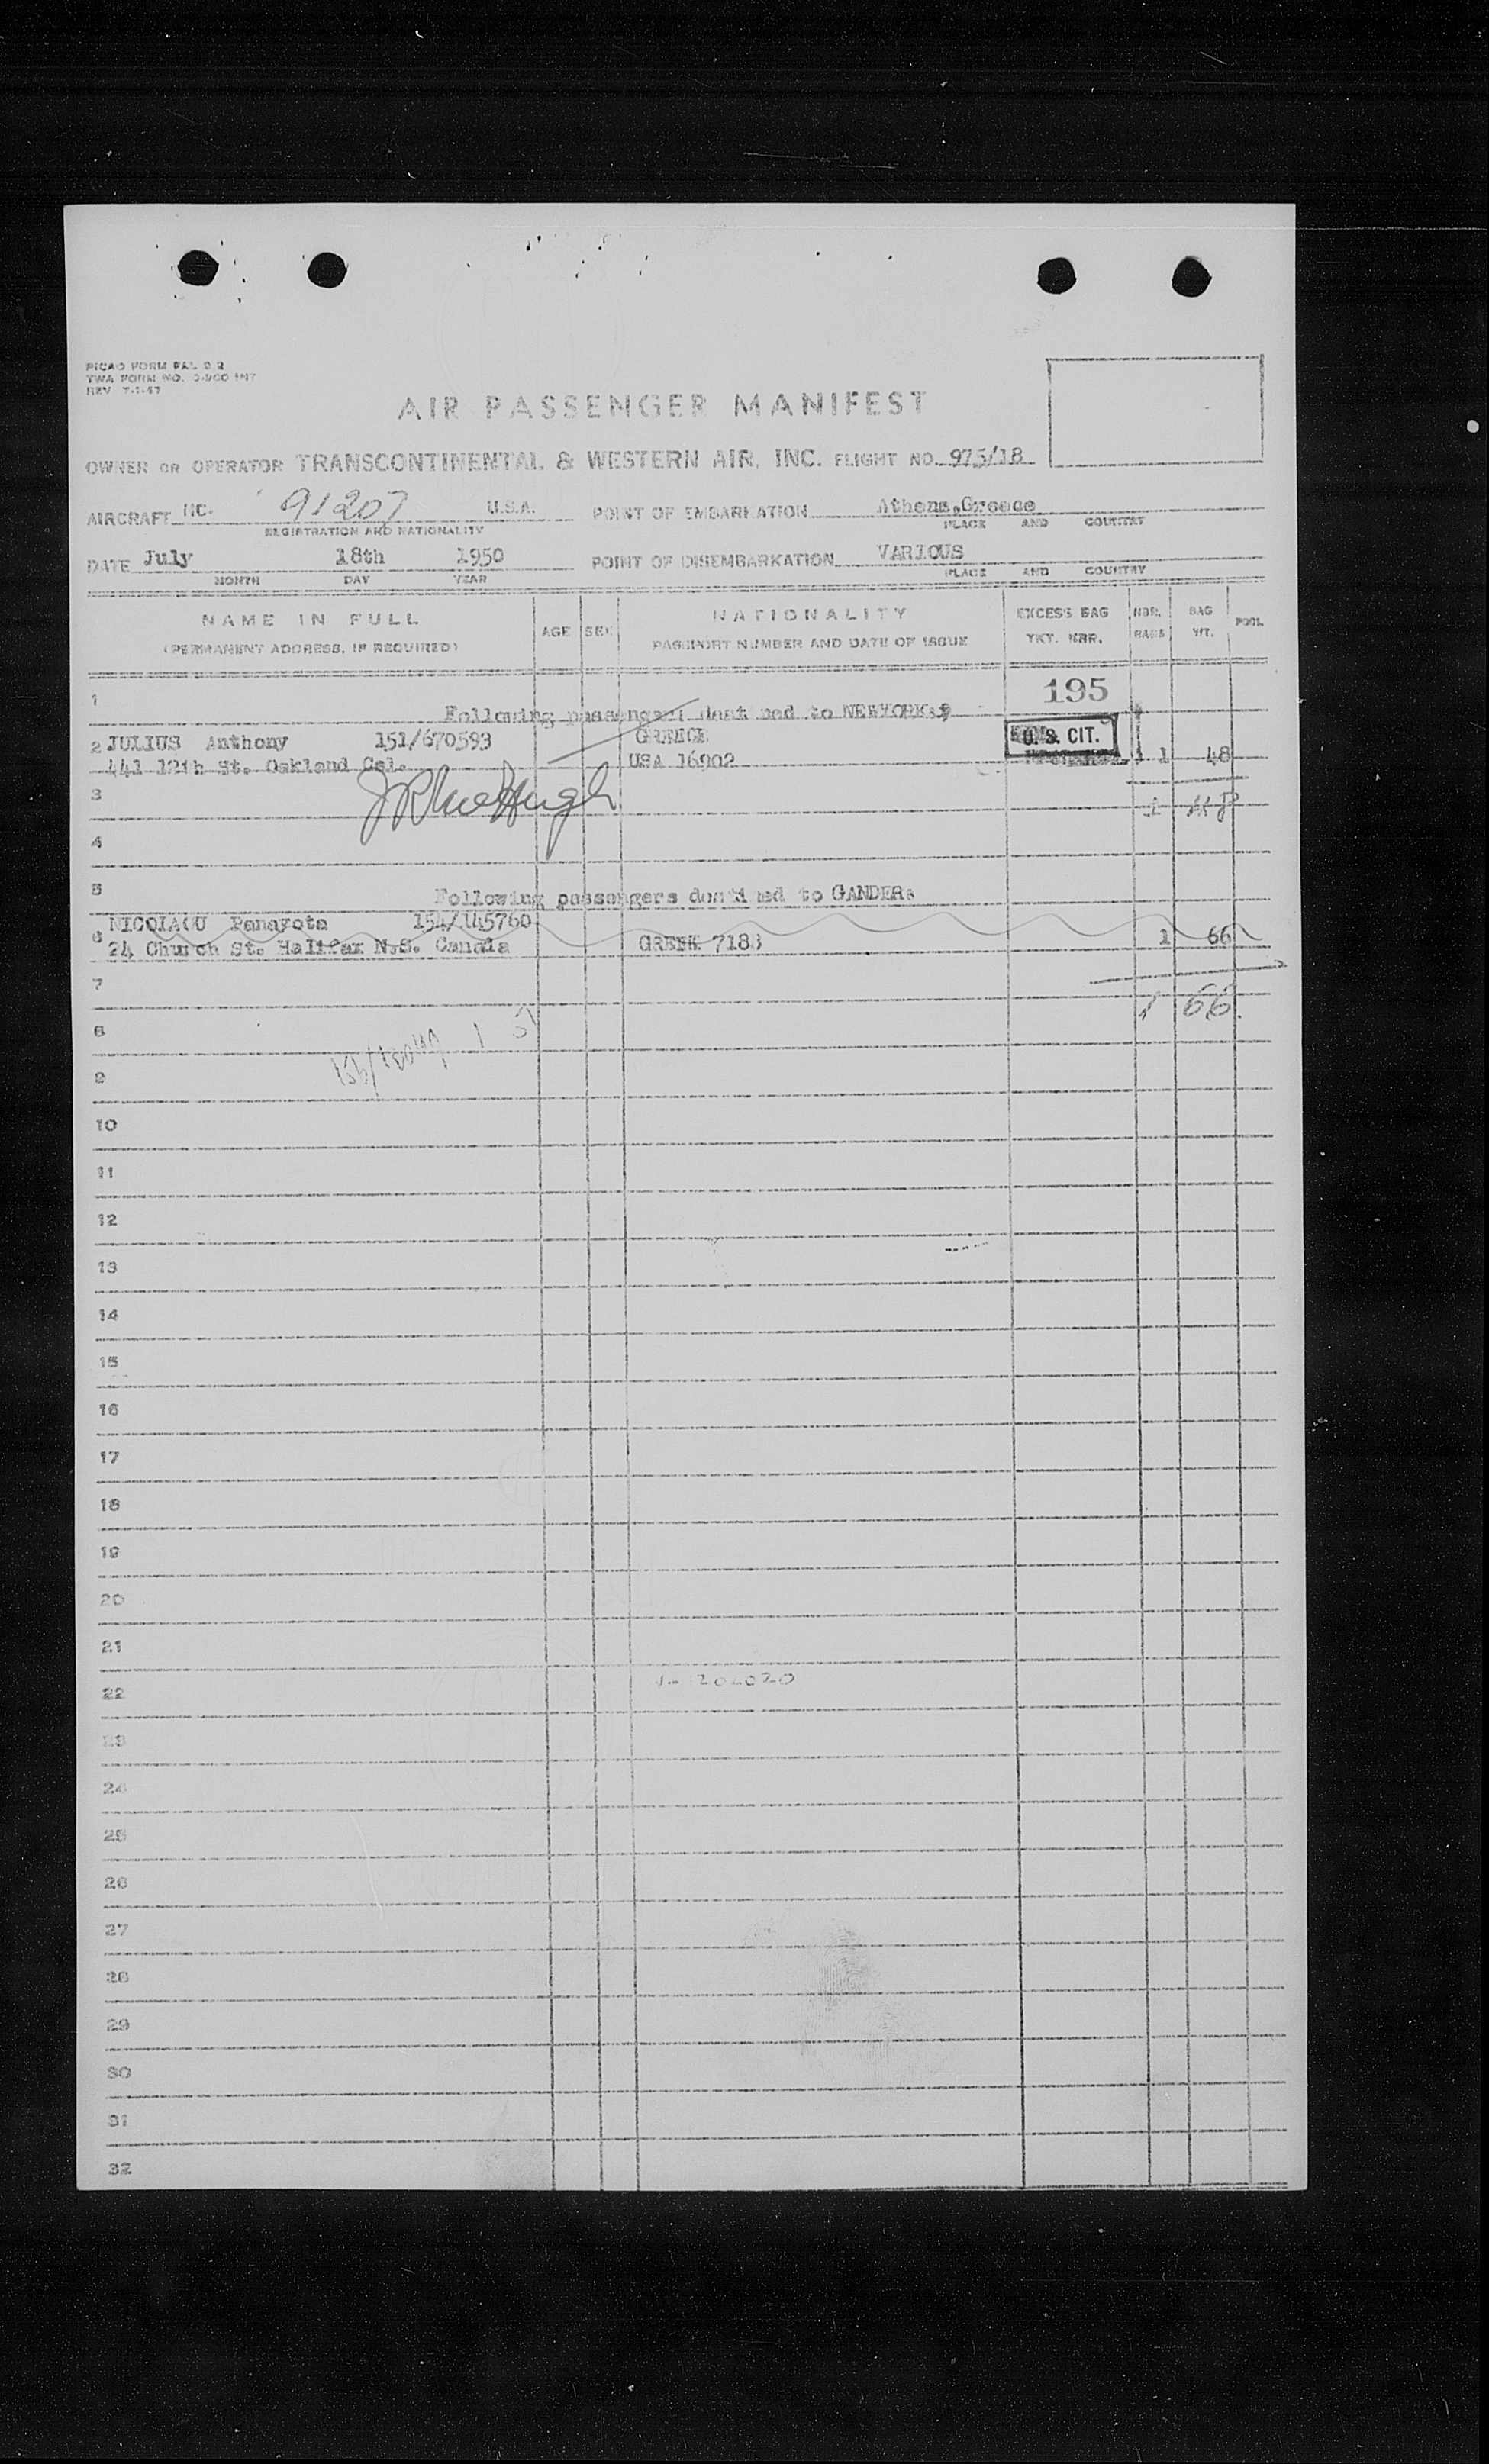 PICAO FORM PAL 2.2
TWA FORM NO.
REV 7-1-47
AIR PASSENGER MANIFEST
OWNER OR OPERATOR TRANSCONTINENTAL & WESTERN AIR, INC. FLIGHT NO. 975/18
AIRCRAFT NC. 91207 U.S.A. POINT OF EMBARKATION Athens,Greece
REGISTRATION AND NATIONALITY PLACE AND COUNTRY
DATE July 18th 1950 POINT OF DISEMBARKATION VARIOUS
MONTH DAY YEAR PLACE AND COUNTRY
NAME IN FULL AGE SEX NATIONALITY EXCESS BAG NBR. BAG POOL
(PERMANENT ADDRESS, IF REQUIRED) PASSPORT NUMBER AND DATE OF ISSUE TKT. NBR. BAGS WT.
1 195
Following passengers destined to NEWYORK:
2 JULIUS Anthony 151/670593 GREECE U. S. CIT.
441 12th St. Oakland Cal. USA 16902 1 48
3 1 48
4
5 Following passengers destined to GANDER:
NICOIAOU Panayota 154/145760
6 24 Church St. Halifax N.S. Canada GREEK 7183 1 66
7 1 66
8
9
10
11
12
13
14
15
16
17
18
19
20
21
22
23
24
25
26
27
28
29
30
31
32